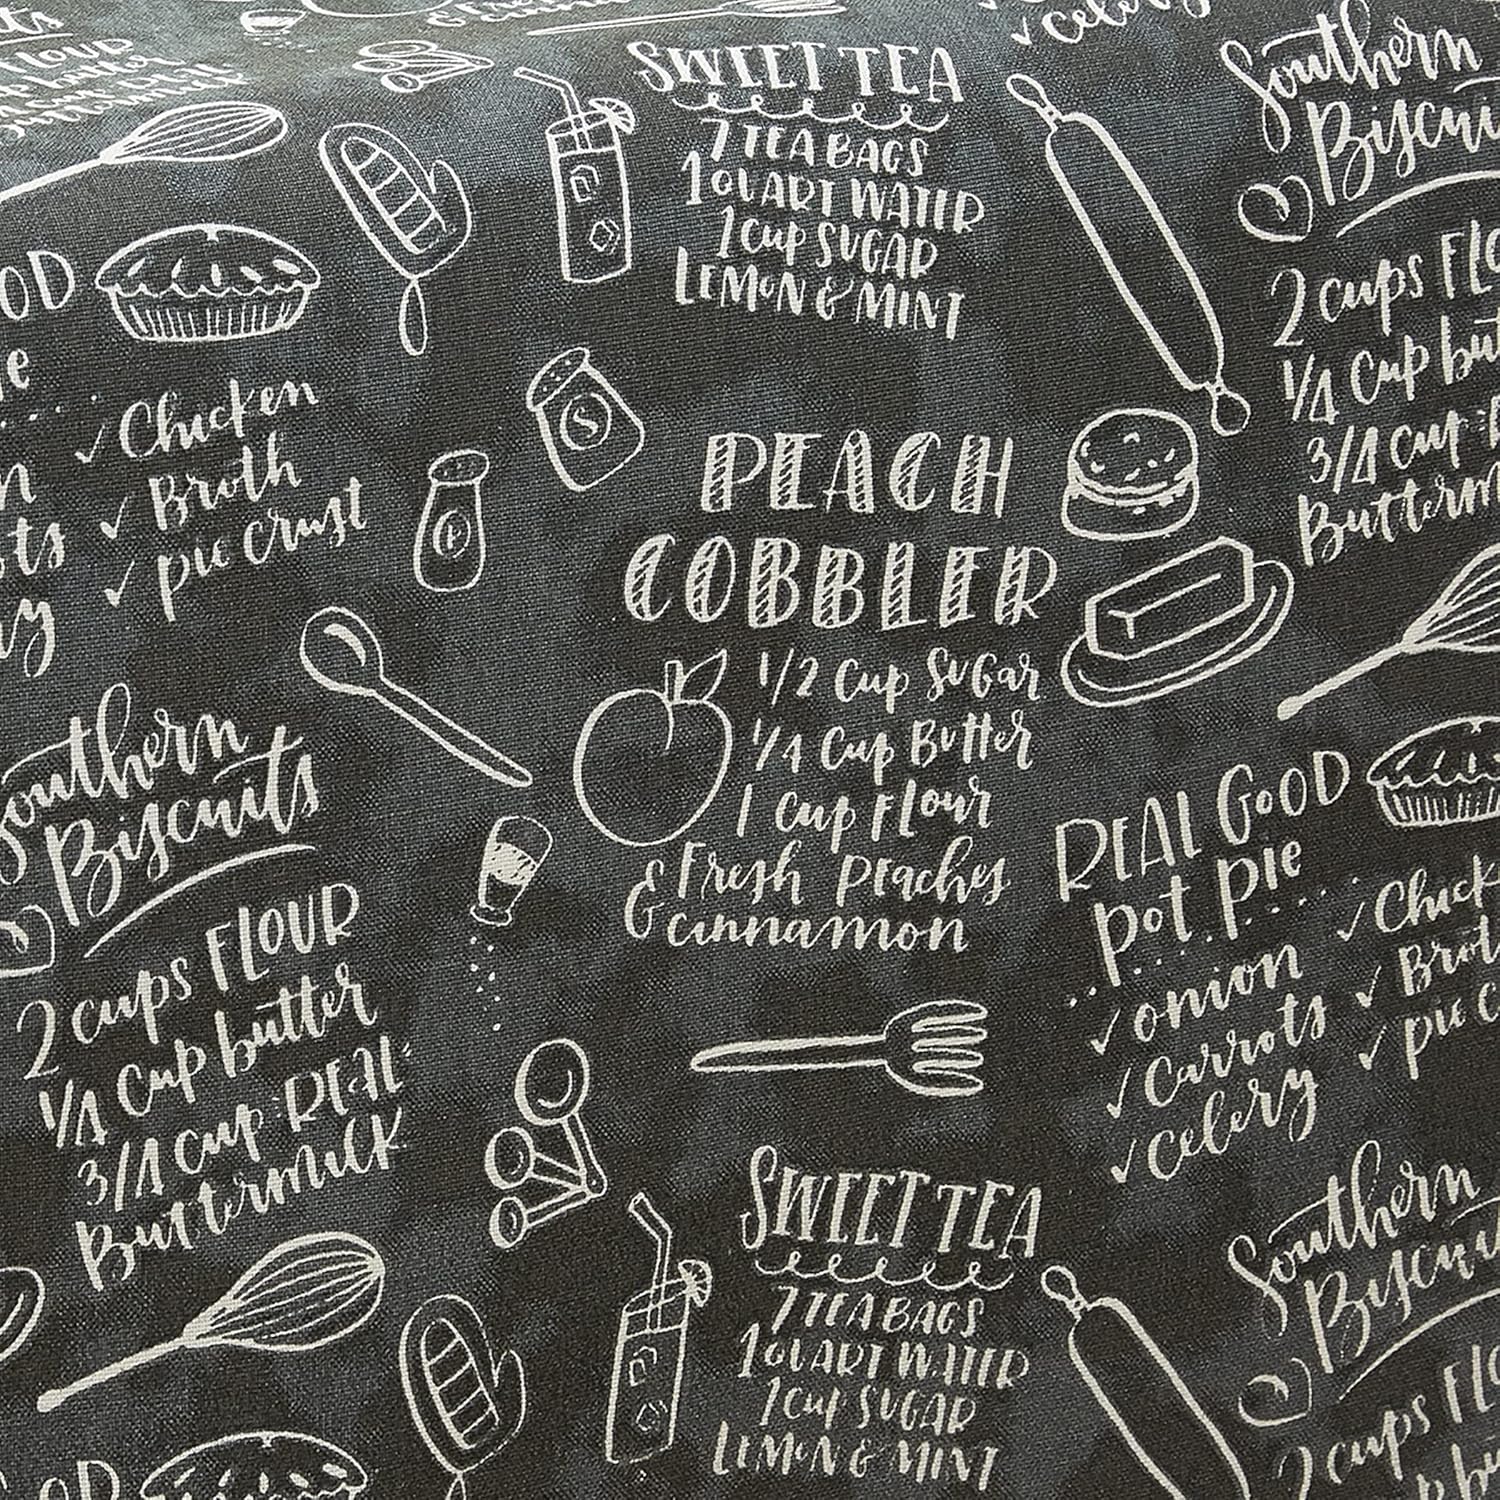 & Fresh
& cinnamon
✓ celery
SWEET TEA
7 TEA BAGS
1 QUART WATER
1 cup SUGAR
LEMON & MINT
Southern
Biscui
2 cups FLO
1/4 cup but
3/4 cup
Butterm
OOD
ie
✓ Chicken
✓ Broth
✓ pie crust
PEACH
COBBLER
1/2 Cup Sugar
1/4 Cup Butter
1 Cup Flour
& Fresh Peaches
& cinnamon
S
P
Southern
Biscuits
2 cups FLOUR
1/4 cup butter
3/4 cup "REAL"
Buttermilk
REAL GOOD
pot pie
✓ onion
✓ Carrots
✓ celery
✓ Chick
✓ Brot
✓ pie c
SWEET TEA
7 TEA BAGS
1 QUART WATER
1 cup SUGAR
LEMON & MINT
Southern
Biscuit
2 cups FLO
OD